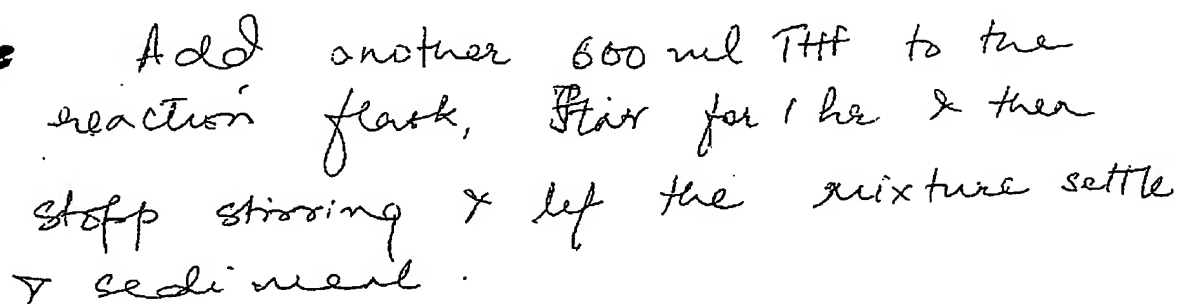 Add another 600 ml THF to the
reaction flask, Stir for 1 hr & then
stopp stirring & let the mixture settle
& sediment.